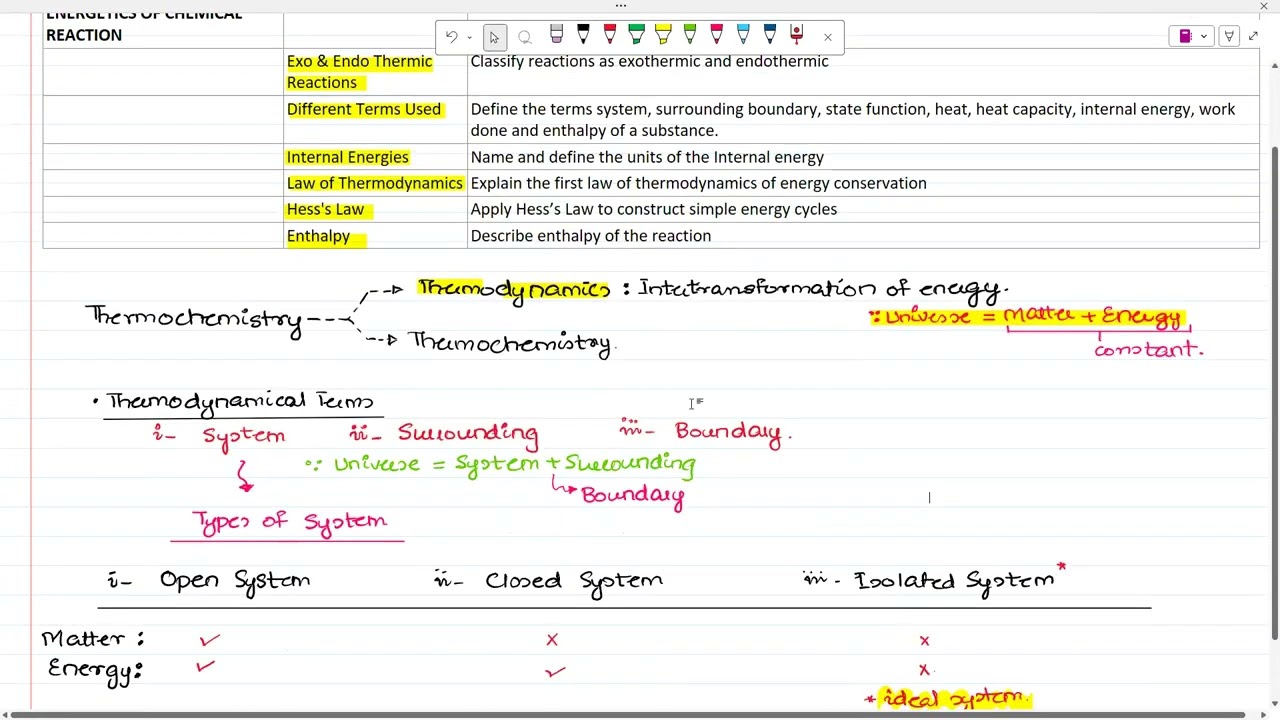 ENERGETICS OF CHEMICAL
REACTION
Exo & Endo Thermic
Reactions
Classify reactions as exothermic and endothermic
Different Terms Used
Define the terms system, surrounding boundary, state function, heat, heat capacity, internal energy, work
done and enthalpy of a substance.
Internal Energies
Name and define the units of the Internal energy
Law of Thermodynamics
Explain the first law of thermodynamics of energy conservation
Hess's Law
Apply Hess’s Law to construct simple energy cycles
Enthalpy
Describe enthalpy of the reaction
Thermodynamics : Intertransformation of energy.
Thermochemistry
Thermochemistry.
∵ Universe = Matter + Energy
constant.
• Thermodynamical Terms
i- System ii- Surrounding iii- Boundary.
∵ Universe = System + Surrounding
Boundary
Types of System
i- Open System ii- Closed System iii- Isolated System *
Matter : ✓ × ×
Energy: ✓ ✓ ×
* ideal system.